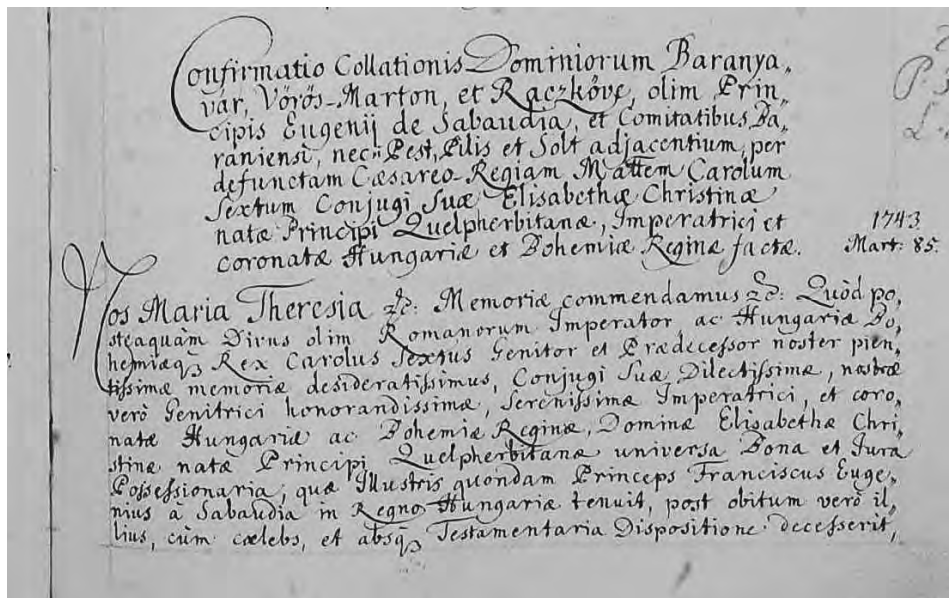 Confirmatio Collationis Dominiorum Baranya„
vár, Vörös-Marton, et Raczköve, olim Prin„
cipis Eugenij de Sabaudia, et Comitatibus Ba„
raniensi, necñ Pest, Pilis et Solt adjacentium, per
defunctam Cæsareo-Regiam Mattem Carolum
Sextum Conjugi Suæ Elisabethæ Christinæ
natæ Principi Quelpherbitanæ, Imperatrici et
coronatæ Hungariæ et Bohemiæ Reginæ factæ.
1743.
Mart: 85.
Nos Maria Theresia &c: Memoriæ commendamus &c: Quòd po„
steaquàm Divus olim Romanorum Imperator, ac Hungariæ Bo„
hemiæq3 Rex Carolus Sextus Genitor et Prædecessor noster pien„
tissimæ memoriæ desideratissimus, Conjugi Suæ Dilectissimæ, nostræ
verò Genitrici honorandissimæ, Serenissimæ Imperatrici, et coro„
natæ Hungariæ ac Bohemiæ Reginæ, Dominæ Elisabethæ Chri„
stinæ natæ Principi Quelpherbitanæ universa Bona et Jura
Possessionaria, quæ Illustris quondam Princeps Franciscus Euge„
nius à Sabaudia in Regno Hungariæ tenuit, post obitum verò il„
lius, cùm cælebs, et absq3 Testamentaria Dispositione decesserit,